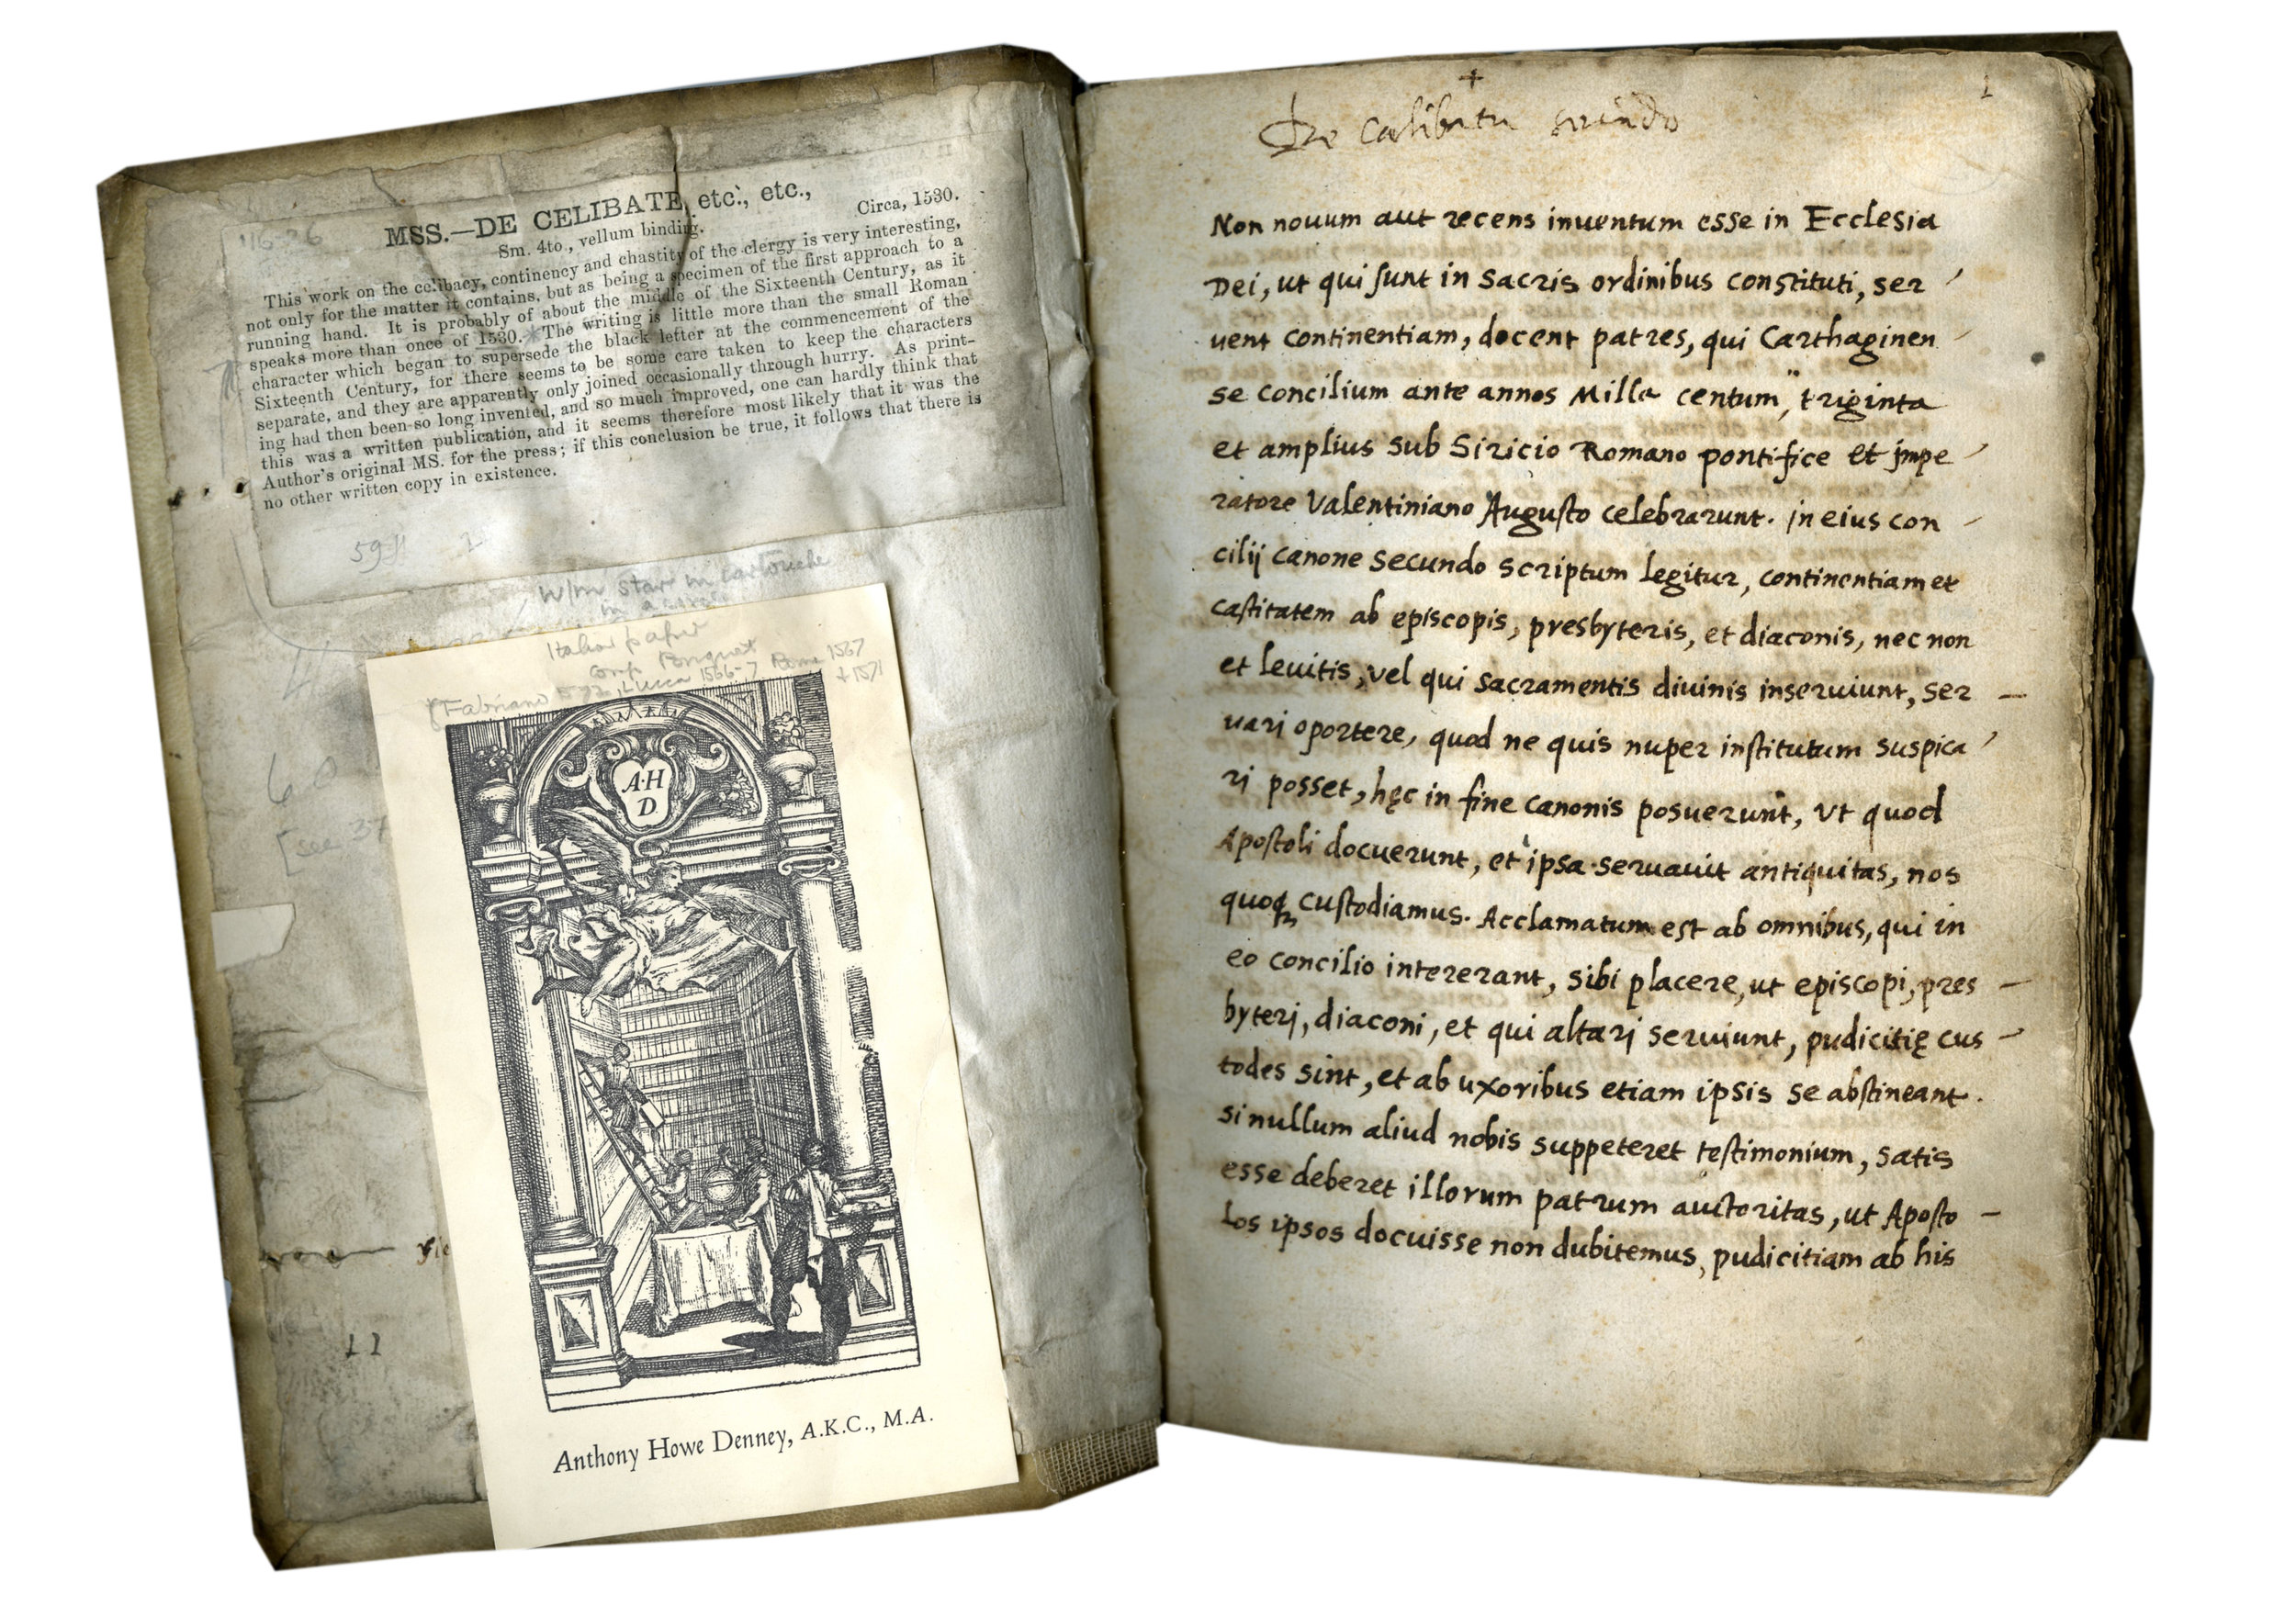 MSS.—DE CELIBATE, etc., etc.,
Circa, 1530.
Sm. 4to., vellum binding.
This work on the celibacy, continency and chastity of the clergy is very interesting,
not only for the matter it contains, but as being a specimen of the first approach to a
running hand. It is probably of about the middle of the Sixteenth Century, as it
speaks more than once of 1530. * The writing is little more than the small Roman
character which began to supersede the black letter at the commencement of the
Sixteenth Century, for there seems to be some care taken to keep the characters
separate, and they are apparently only joined occasionally through hurry. As print-
ing had then been so long invented, and so much improved, one can hardly think that
this was a written publication, and it seems therefore most likely that it was the
Author's original MS. for the press; if this conclusion be true, it follows that there is
no other written copy in existence.
w/m star in cartouche
in a
Italian paper
comp Briquet
Fabriano Lucca 1566-7 Rome 1567
+ 1571
60
[see 37
A·H
D
Anthony Howe Denney, A.K.C., M.A.
11
+
1
De Cælibatu
Non nouum aut recens inuentum esse in Ecclesia
Dei, ut qui ſunt in Sacris ordinibus conſtituti, ser
uent continentiam, docent patres, qui Carthaginen
se concilium ante annos Mille centum, triginta
et amplius sub Siricio Romano pontifice et impe
ratore Valentiniano Auguſto celebrarunt. in eius con
cilij canone secundo scriptum legitur, continentiam et
caſtitatem ab episcopis, presbyteris, et diaconis, nec non
et leuitis, vel qui sacramentis diuinis inseruiunt, ser
uari oportere, quod ne quis nuper inſtitutum suspica
ri posset, hęc in fine canonis posuerunt, ut quod
Apoſtoli docuerunt, et ipsa seruauit antiquitas, nos
quoqꝫ cuſtodiamus. Acclamatum est ab omnibus, qui in
eo concilio intererant, sibi placere, ut episcopi, pres
byteri, diaconi, et qui altari seruiunt, pudicitię cus
todes sint, et ab uxoribus etiam ipsis se abſtineant.
si nullum aliud nobis suppeteret teſtimonium, satis
esse deberet illorum patrum auctoritas, ut Apoſto
los ipsos docuisse non dubitemus, pudicitiam ab his